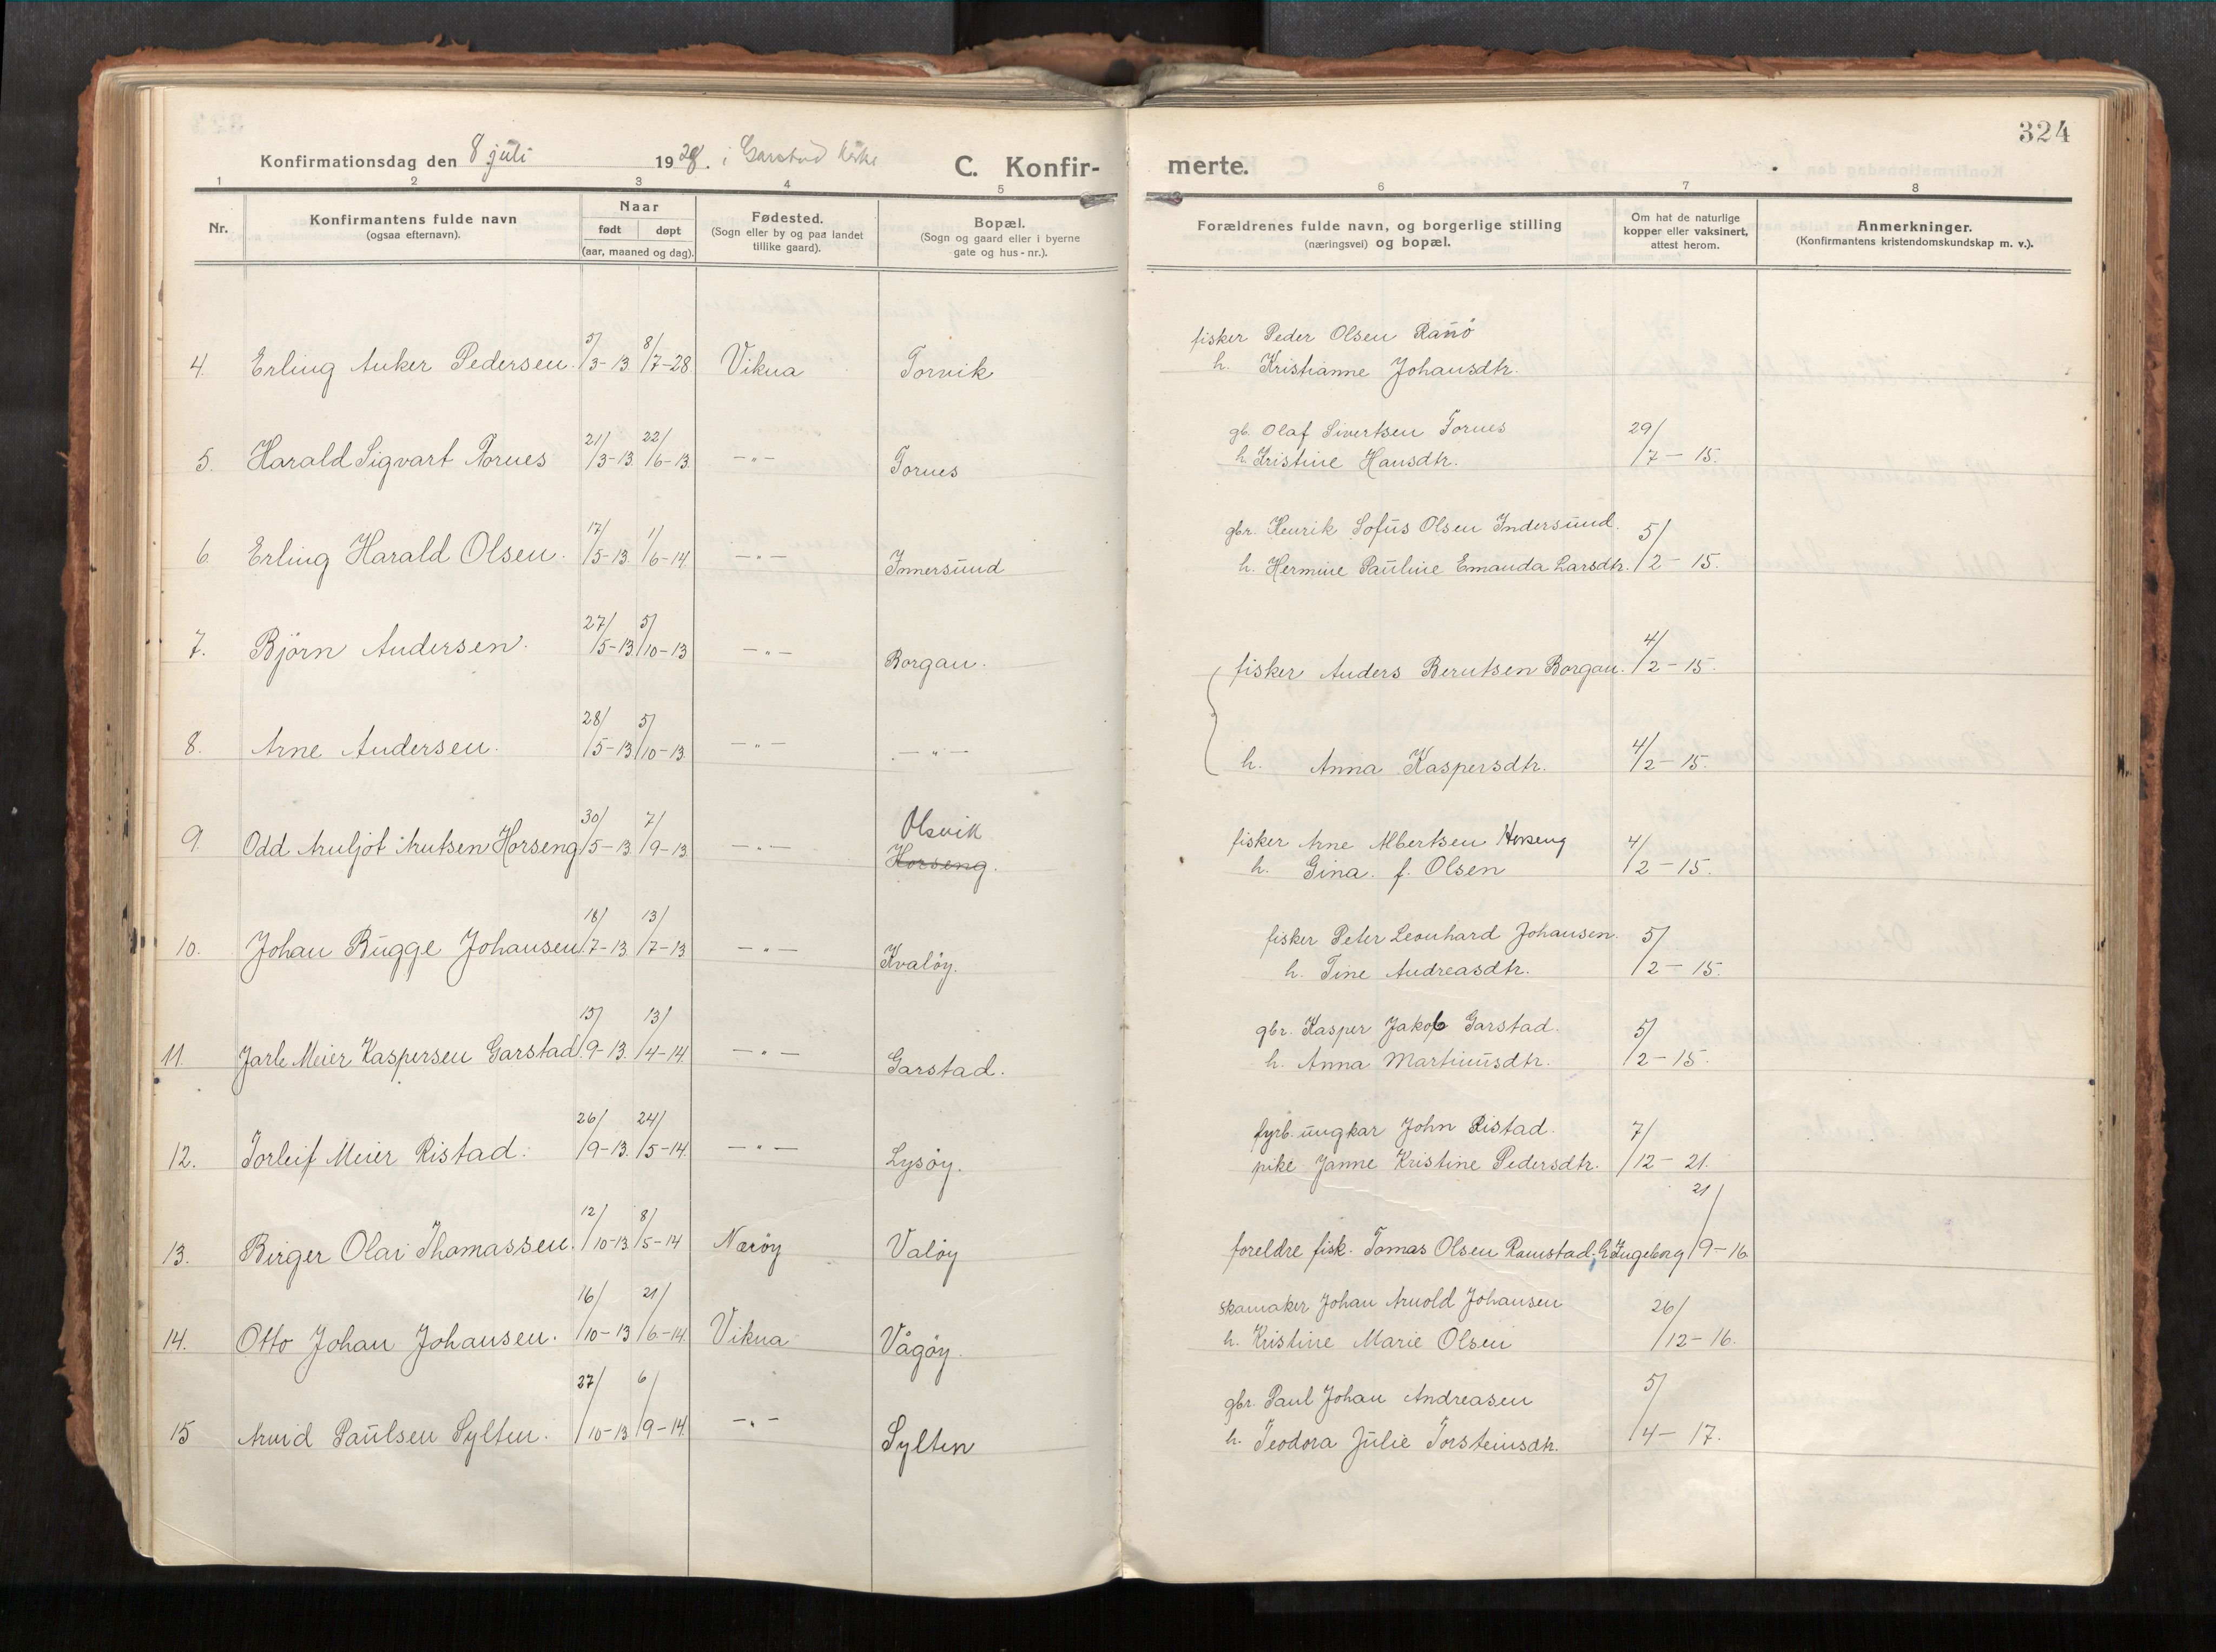 324
Konfirmationsdag den 8 juli 1928. i Garstad kirke
C. Konfir-
merte.
1 2 3 4 5 6 7 8
Nr.
Konfirmantens fulde navn
(ogsaa efternavn).
Naar
født døpt
(aar, maaned og dag).
Fødested.
(Sogn eller by og paa landet
tillike gaard).
Bopæl.
(Sogn og gaard eller i byerne
gate og hus-nr.).
Forældrenes fulde navn, og borgerlige stilling
(næringsvei) og bopæl.
Om hat de naturlige
kopper eller vaksinert,
attest herom.
Anmerkninger.
(Konfirmantens kristendomskundskap m. v.).
fisker Peder Olsen Ranö
4. Erling Anker Pedersen. 5/3-13 8/7-28 Vikna Torvik h. Kristianne Johansdtr.
gb. Olaf Sivertsen Tornes
5. Harald Sigvart Tornes 21/3-13. 22/6-13. -"- Tornes h. Kristine Hansdtr. 29/7-15.
gbr. Henrik Sofus Olsen Indersund.
6. Erling Harald Olsen. 17/5-13 1/6-14. -"- Innersund h. Hermine Pauline Emanda Larsdtr. 5/2-15.
7. Björn Andersen. 27/5-13. 5/10-13 -"- Borgan. fisker Anders Berntsen Borgan. 4/2-15.
8. Arne Andersen. 28/5-13 5/10-13. -"- -"- h. Anna Kaspersdtr. 4/2-15.
Olsvik
fisker Arne Albertsen Horseng
9. Odd Arnljot Arntsen Horseng 30/5-13 7/9-13. -"- Horseng. h. Gina f. Olsen 4/2-15.
fisker Peter Leonhard Johansen.
10. Johan Bugge Johansen 18/7-13. 13/7-13 -"- Kvalöy. h. Tine Andreasdtr. 5/2-15.
gbr. Kasper Jakob Garstad.
11. Jarle Meier Kaspersen Garstad 15/9-13. 13/4-14. -"- Garstad. h. Anna Martinusdtr. 5/2-15.
fyrb. ungkar John Ristad.
12. Torleif Meier Ristad. 26/9-13. 24/5-14. -"- Lysöy. pike Janne Kristine Pedersdtr. 7/12-21.
13. Birger Olai Thomassen. 12/10-13. 8/5-14 Nærøy Valöy foreldre fisk. Tomas Olsen Ramstad, h. Ingeborg 21/9-16
skomaker Johan Arnold Johansen
14. Otto Johan Johansen. 16/10-13 21/6-14. Vikna Vågöy. h. Kristine Marie Olsen 26/12-16.
gbr. Paul Johan Andreasen
15 Arvid Paulsen Sylten. 27/10-13 6/9-14. -"- Sylten h. Teodora Julie Torsteinsdtr. 5/4-17.